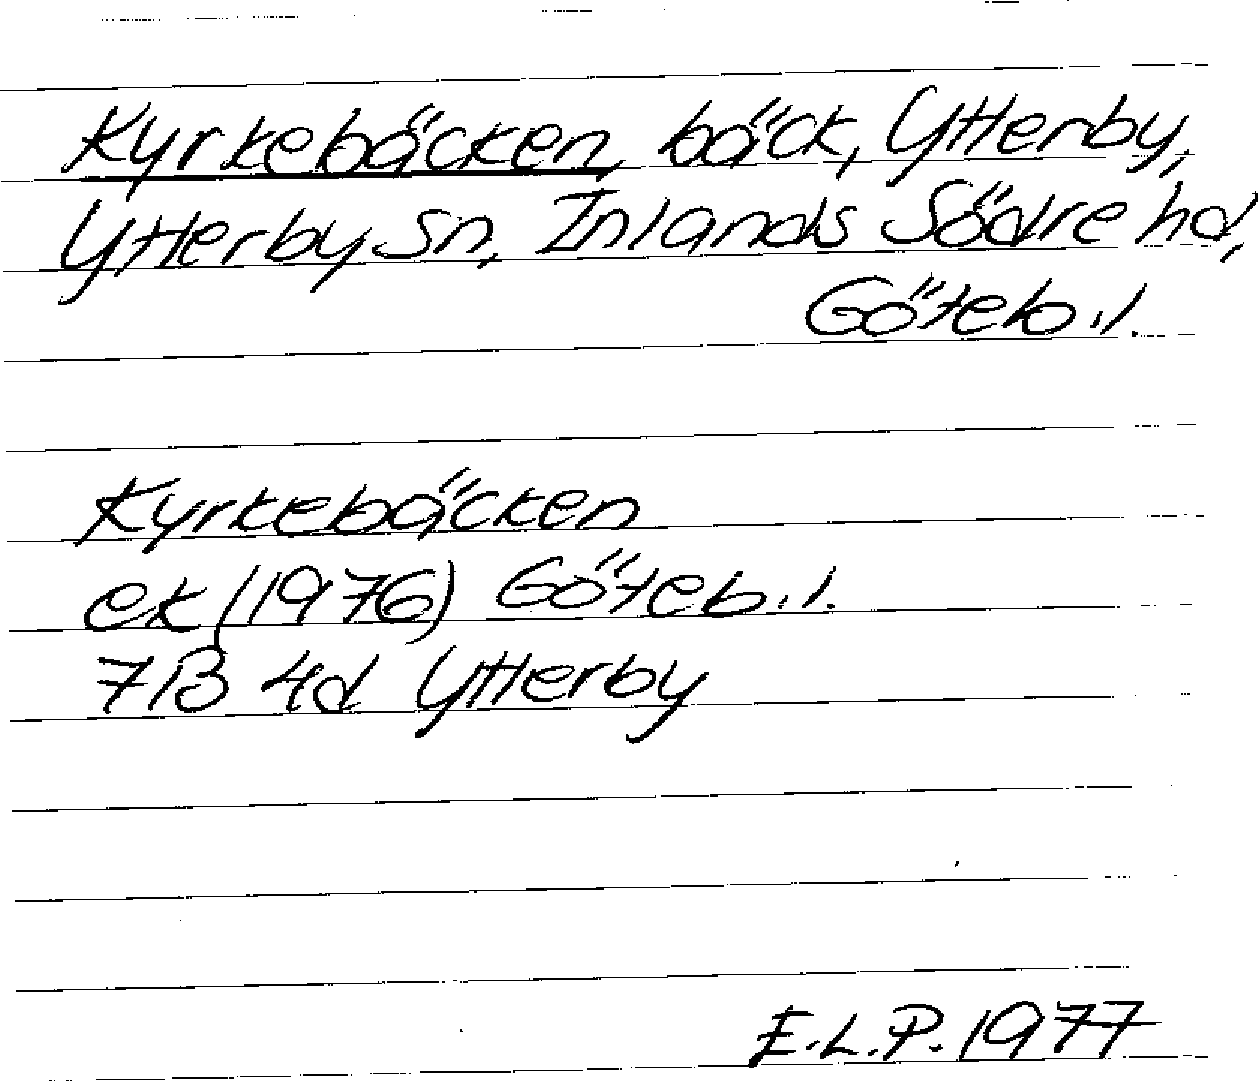 Kyrkebäcken, bäck, Ytterby,
Ytterby sn, Inlands Södre hd,
Göteb.l.
Kyrkebäcken
ek (1976) Göteb.l.
7B 4d Ytterby
E.L.P. 1977